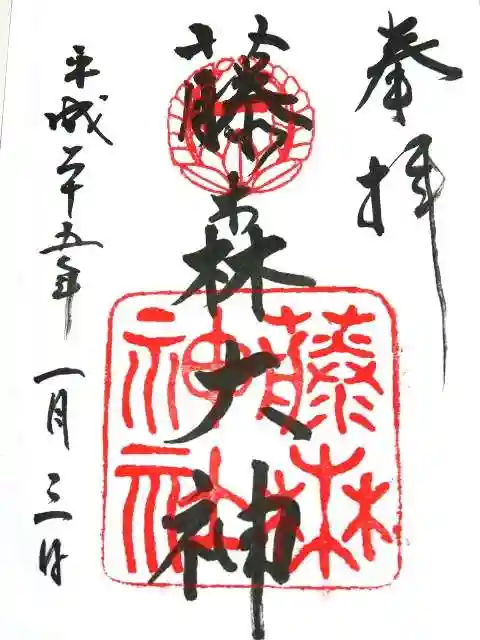 奉拝
藤森大神
藤森
神社
平成二十五年 一月三日